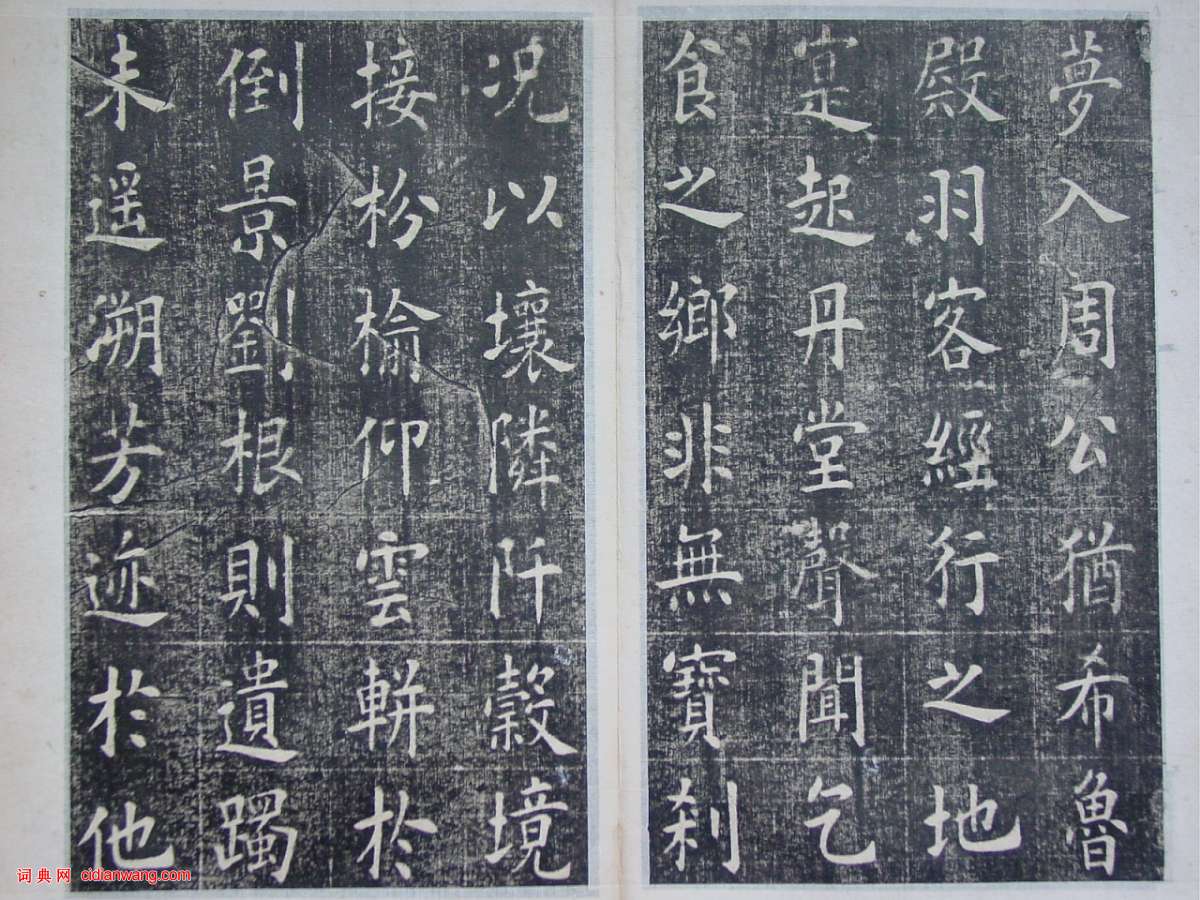 夢入周公猶希魯
殿羽客經行之地
寔起丹堂聲聞乞
食之鄉非無寶刹
况以壤隣阡轂境
接枌榆仰雲軿於
倒景劉根則遺躅
未遥溯芳迹於他
词典网 cidianwang.com